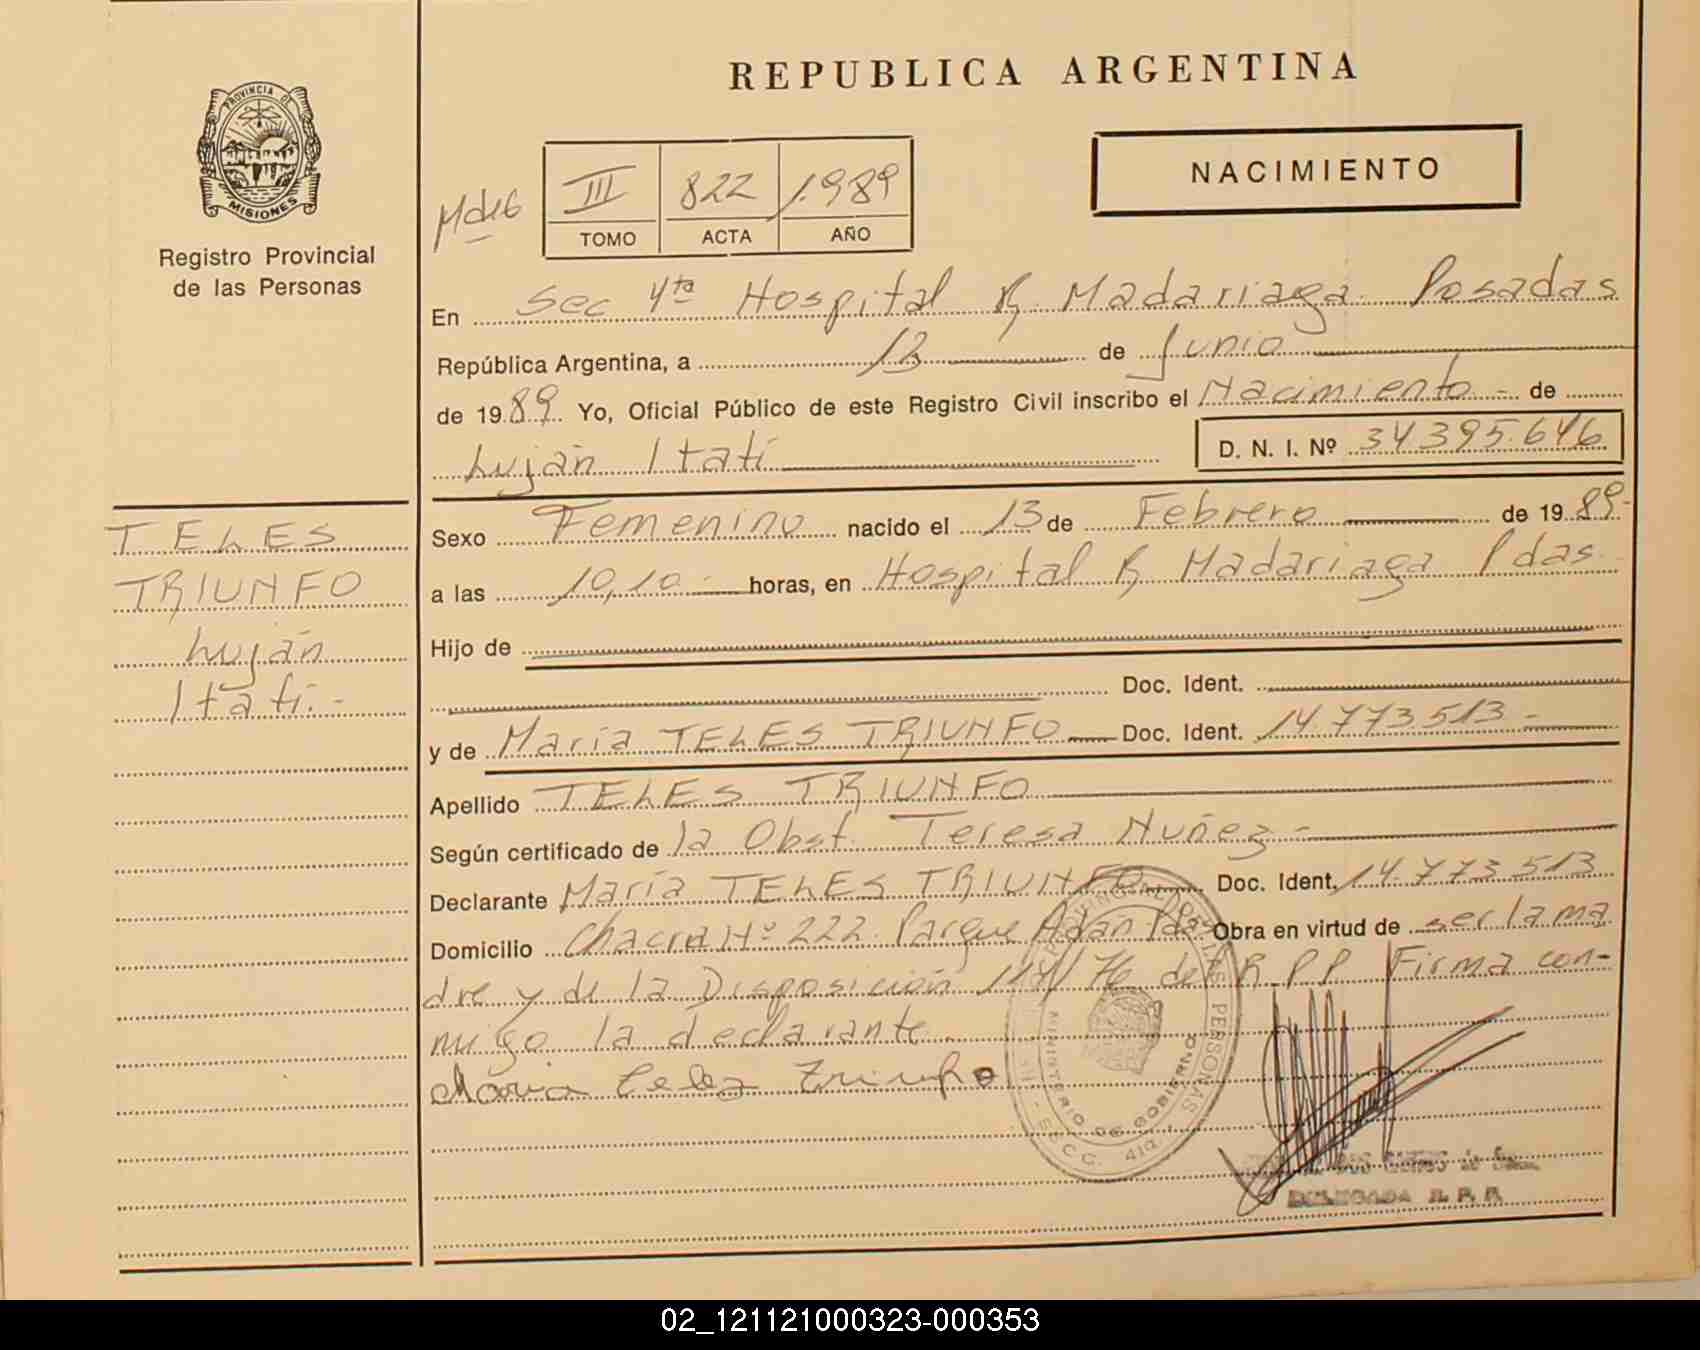 REPUBLICA ARGENTINA
NACIMIENTO
PROVINCIA DE
MISIONES
Registro Provincial
de las Personas
III 822 1.989
TOMO ACTA AÑO
En Sec 4ta Hospital R. Madariaga Posadas
República Argentina, a 12 de Junio
de 1989 Yo, Oficial Público de este Registro Civil inscribo el Nacimiento - de
Luján Itatí
D. N. I. Nº 34.395.646
TELES
TRIUNFO
Luján
Itatí.-
Sexo Femenino nacido el 13 de Febrero de 1989-
a las 10,10 - horas, en Hospital R Madariaga Pdas.
Hijo de
Doc. Ident.
y de María TELES TRIUNFO Doc. Ident. 14.773513 -
Apellido TELES TRIUNFO
Según certificado de la Obst. Teresa Nuñez -
Declarante María TELES TRIUNFO Doc. Ident. 14.773513
Domicilio Chacra Nº 222 Parque Adán Pdas Obra en virtud de ser la ma
dre y de la Disposición /76 del R.P.P. Firma con-
migo la declarante.
Maria Teles Triunfo
MINISTERIO DE GOBIERNO
PERSONAS
SECC. 4ta
DELEGADA R. P. P.
02_121121000323-000353